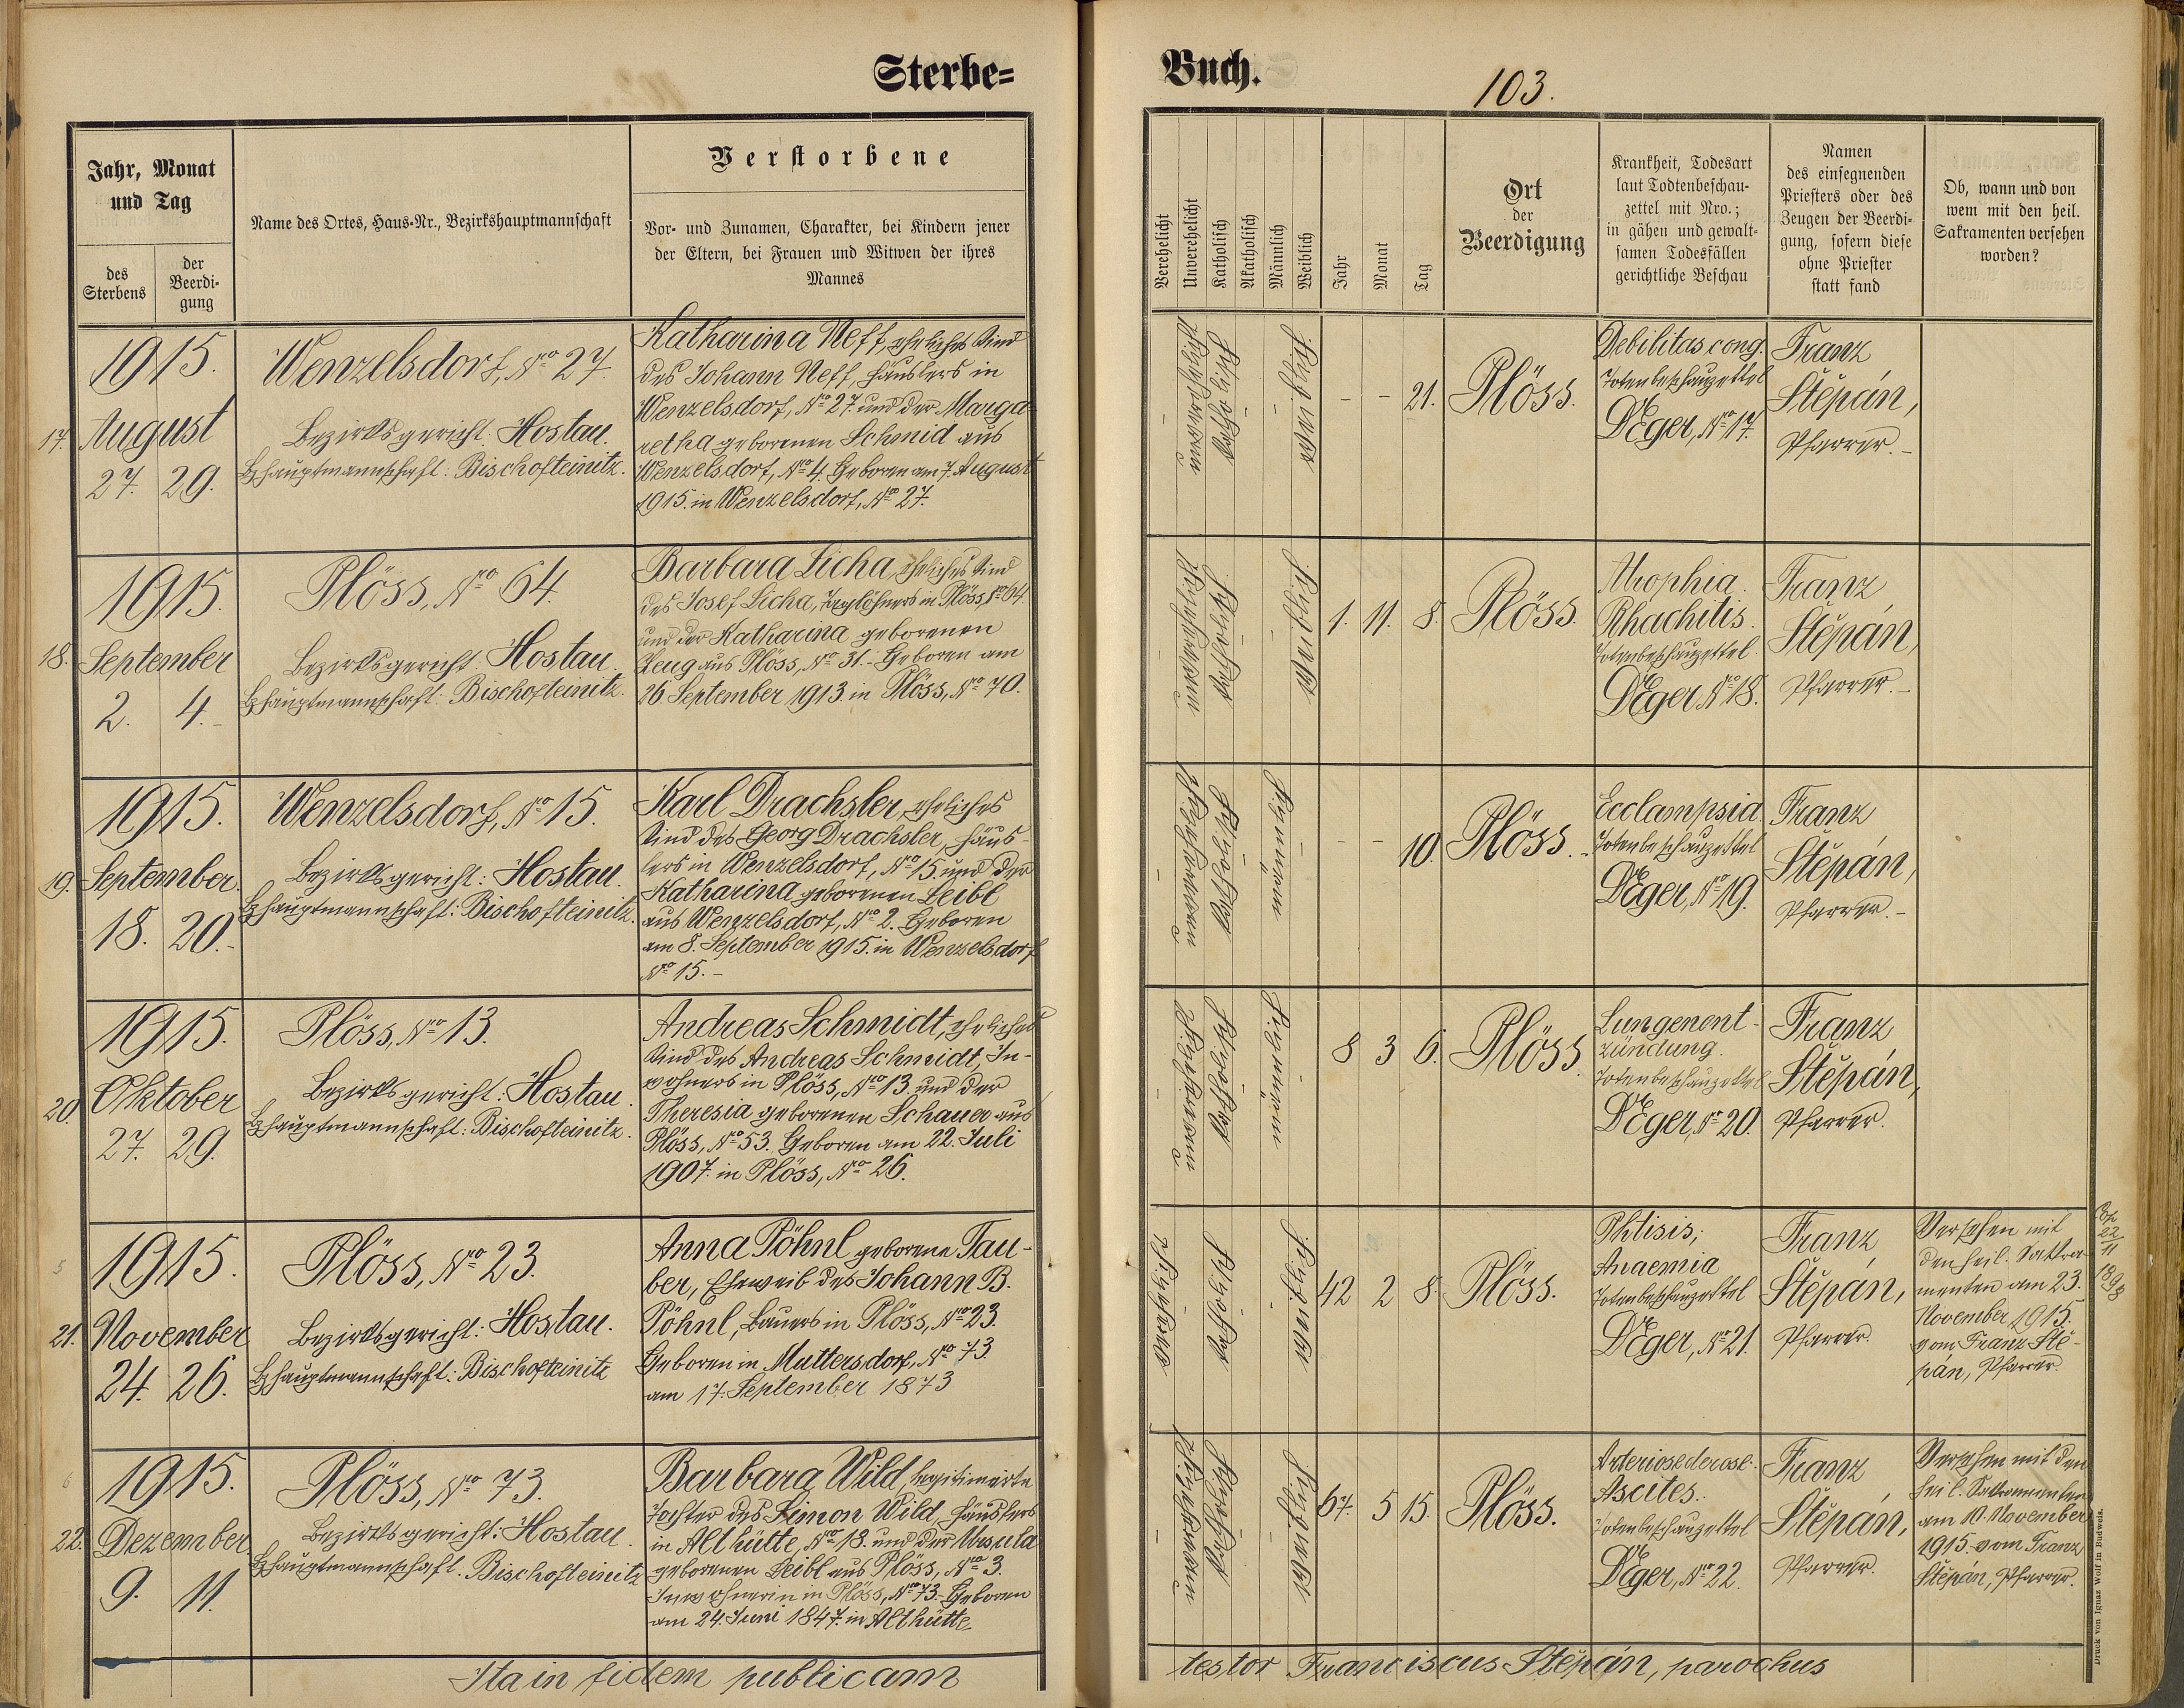 Sterbe=
Buch.
103.
Jahr, Monat
und Tag
des
Sterbens
der
Beerdi-
gung
Name des Ortes, Haus-Nr., Bezirkshauptmannschaft
Verstorbene
Vor- und Zunamen, Charakter, bei Kindern jener
der Eltern, bei Frauen und Witwen der ihres
Mannes
Verehelicht
Unverehelicht
Katholisch
Akatholisch
Männlich
Weiblich
Jahr
Monat
Tag
Ort
der
Beerdigung
Krankheit, Todesart
laut Todtenbeschau-
zettel mit Nro.;
in gähen und gewalt-
samen Todesfällen
gerichtliche Beschau
Namen
des einsegnenden
Priesters oder des
Zeugen der Beerdi-
gung, sofern diese
ohne Priester
statt fand
Ob, wann und von
wem mit den heil.
Sakramenten versehen
worden?
17.
1915.
August
27. 29.
Wenzelsdorf, Nro 27.
Bezirksgericht: Hostau.
Bzhauptmannschaft: Bischofteinitz.
Katharina Neff, eheliches Kind
des Johann Neff, Häuslers in
Wenzelsdorf, Nro 27. und der Marga-
retha geborenen Schmid aus
Wenzelsdorf, Nro 4. Geboren am 7. August
1915. in Wenzelsdorf, Nro 27.
- - 21.
Plöss.
Debilitas cong.
Totenbeschauzettel
Dr Eger, Nro 17.
Franz
Štěpán,
Pfarrer.-
18.
1915.
September
2. 4.-
Plöss, Nro 64.
Bezirksgericht: Hostau.
Bzhauptmannschaft: Bischofteinitz.
Barbara Licha, eheliches Kind
des Josef Licha, Taglöhners in Plöss, Nro 64.
und der Katharina geborenen
Zeug aus Plöss, Nro 31.- Geboren am
26 September 1913. in Plöss, Nro 70.
1. 11. 8.
Plöss.
Atrophia.
Rhachitis.
Totenbeschauzettel.
Dr Eger Nro 18.
Franz
Štěpán,
Pfarrer.-
19.
1915.
September
18. 20.-
Wenzelsdorf, Nro 15.
Bezirksgericht: Hostau.
Bzhauptmannschaft: Bischofteinitz.
Karl Drachsler, eheliches
Kind des Georg Drachsler, Häus-
lers in Wenzelsdorf, Nro 15. und der
Katharina geborenen Leibl
aus Wenzelsdorf, Nro 2. Geboren
am 8. September 1915. in Wenzelsdorf
Nro 15.-
- - 10.
Plöss.
Ecclampsia.
Totenbeschauzettel
Dr Eger, Nro 19.
Franz
Štěpán,
Pfarrer.-
20.
1915.
Oktober
27. 29.
Plöss, Nro 13.
Bezirksgericht: Hostau.
Bzhauptmannschaft: Bischofteinitz.
Andreas Schmidt, eheliches
Kind des Andreas Schmidt, In-
wohners in Plöss, Nro 13. und der
Theresia geborenen Schauer aus
Plöss, Nro 53. Geboren am 22. Juli
1907. in Plöss, Nro 26.
8 3 6.
Plöss.
Lungenent-
zündung.
Totenbeschauzettel
Dr Eger, Nro 20.
Franz
Štěpán,
Pfarrer.
21.
1915.
November
24. 26.
Plöss, Nro 23.
Bezirksgericht: Hostau.
Bzhauptmannschaft: Bischofteinitz
Anna Pöhnl geborene Tau-
ber, Eheweib des Johann B.
Pöhnl, Bauers in Plöss, Nro 23.
Geboren in Muttersdorf, Nro 73.
am 17. September 1873
42 2 8.
Plöss.
Phtisis;
Anaemia
Totenbeschauzettel
Dr Eger, Nro 21.
Franz
Štěpán,
Pfarrer.
Versehen mit
den heil. Sakra-
menten am 23.
November 1915.
vom Franz Ště-
pán, Pfarrer.
22
11
1898
22.
1915.
Dezember
9. 11.
Plöss, Nro 73.
Bezirksgericht: Hostau.
Bzhauptmannschaft. Bischofteinitz
Barbara Wild, legitimirte
Tochter des Simon Wild, Häuslers
in Althütte, Nro 18. und der Ursula
geborenen Leibl aus Plöss, Nro 3.
Inwohnerin in Plöss, Nro 73. Geboren
am 24. Juni 1847. in Althütte
67. 5 15.
Plöss.
Arteriosclerose.
Ascites.
Totenbeschauzettel
Dr Eger, Nro 22.
Franz
Štěpán,
Pfarrer.
Versehen mit den
heil. Sakramenten
am 10. November
1915. vom Franz
Štěpán, Pfarrer.
Ita in fidem publicam
testor Franciscus Štěpán, parochus
Druck von Ignaz Wolf in Budweis.